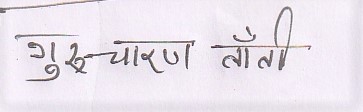 गुरु चारण ताँती